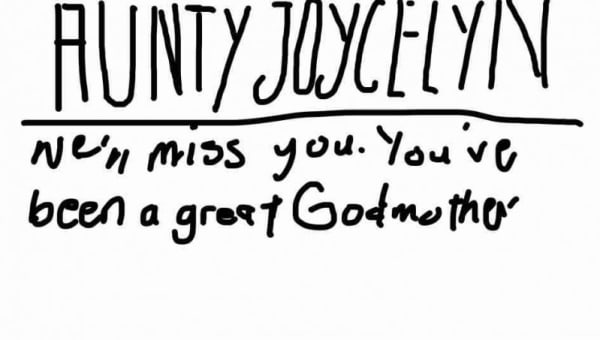 AUNTY JOYCELYN
We'll miss you. You've
been a great Godmother